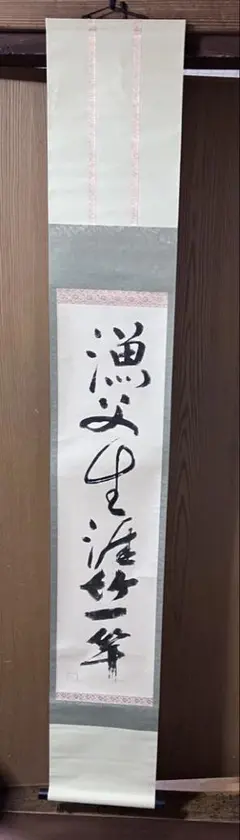 漁父生涯竹一竿